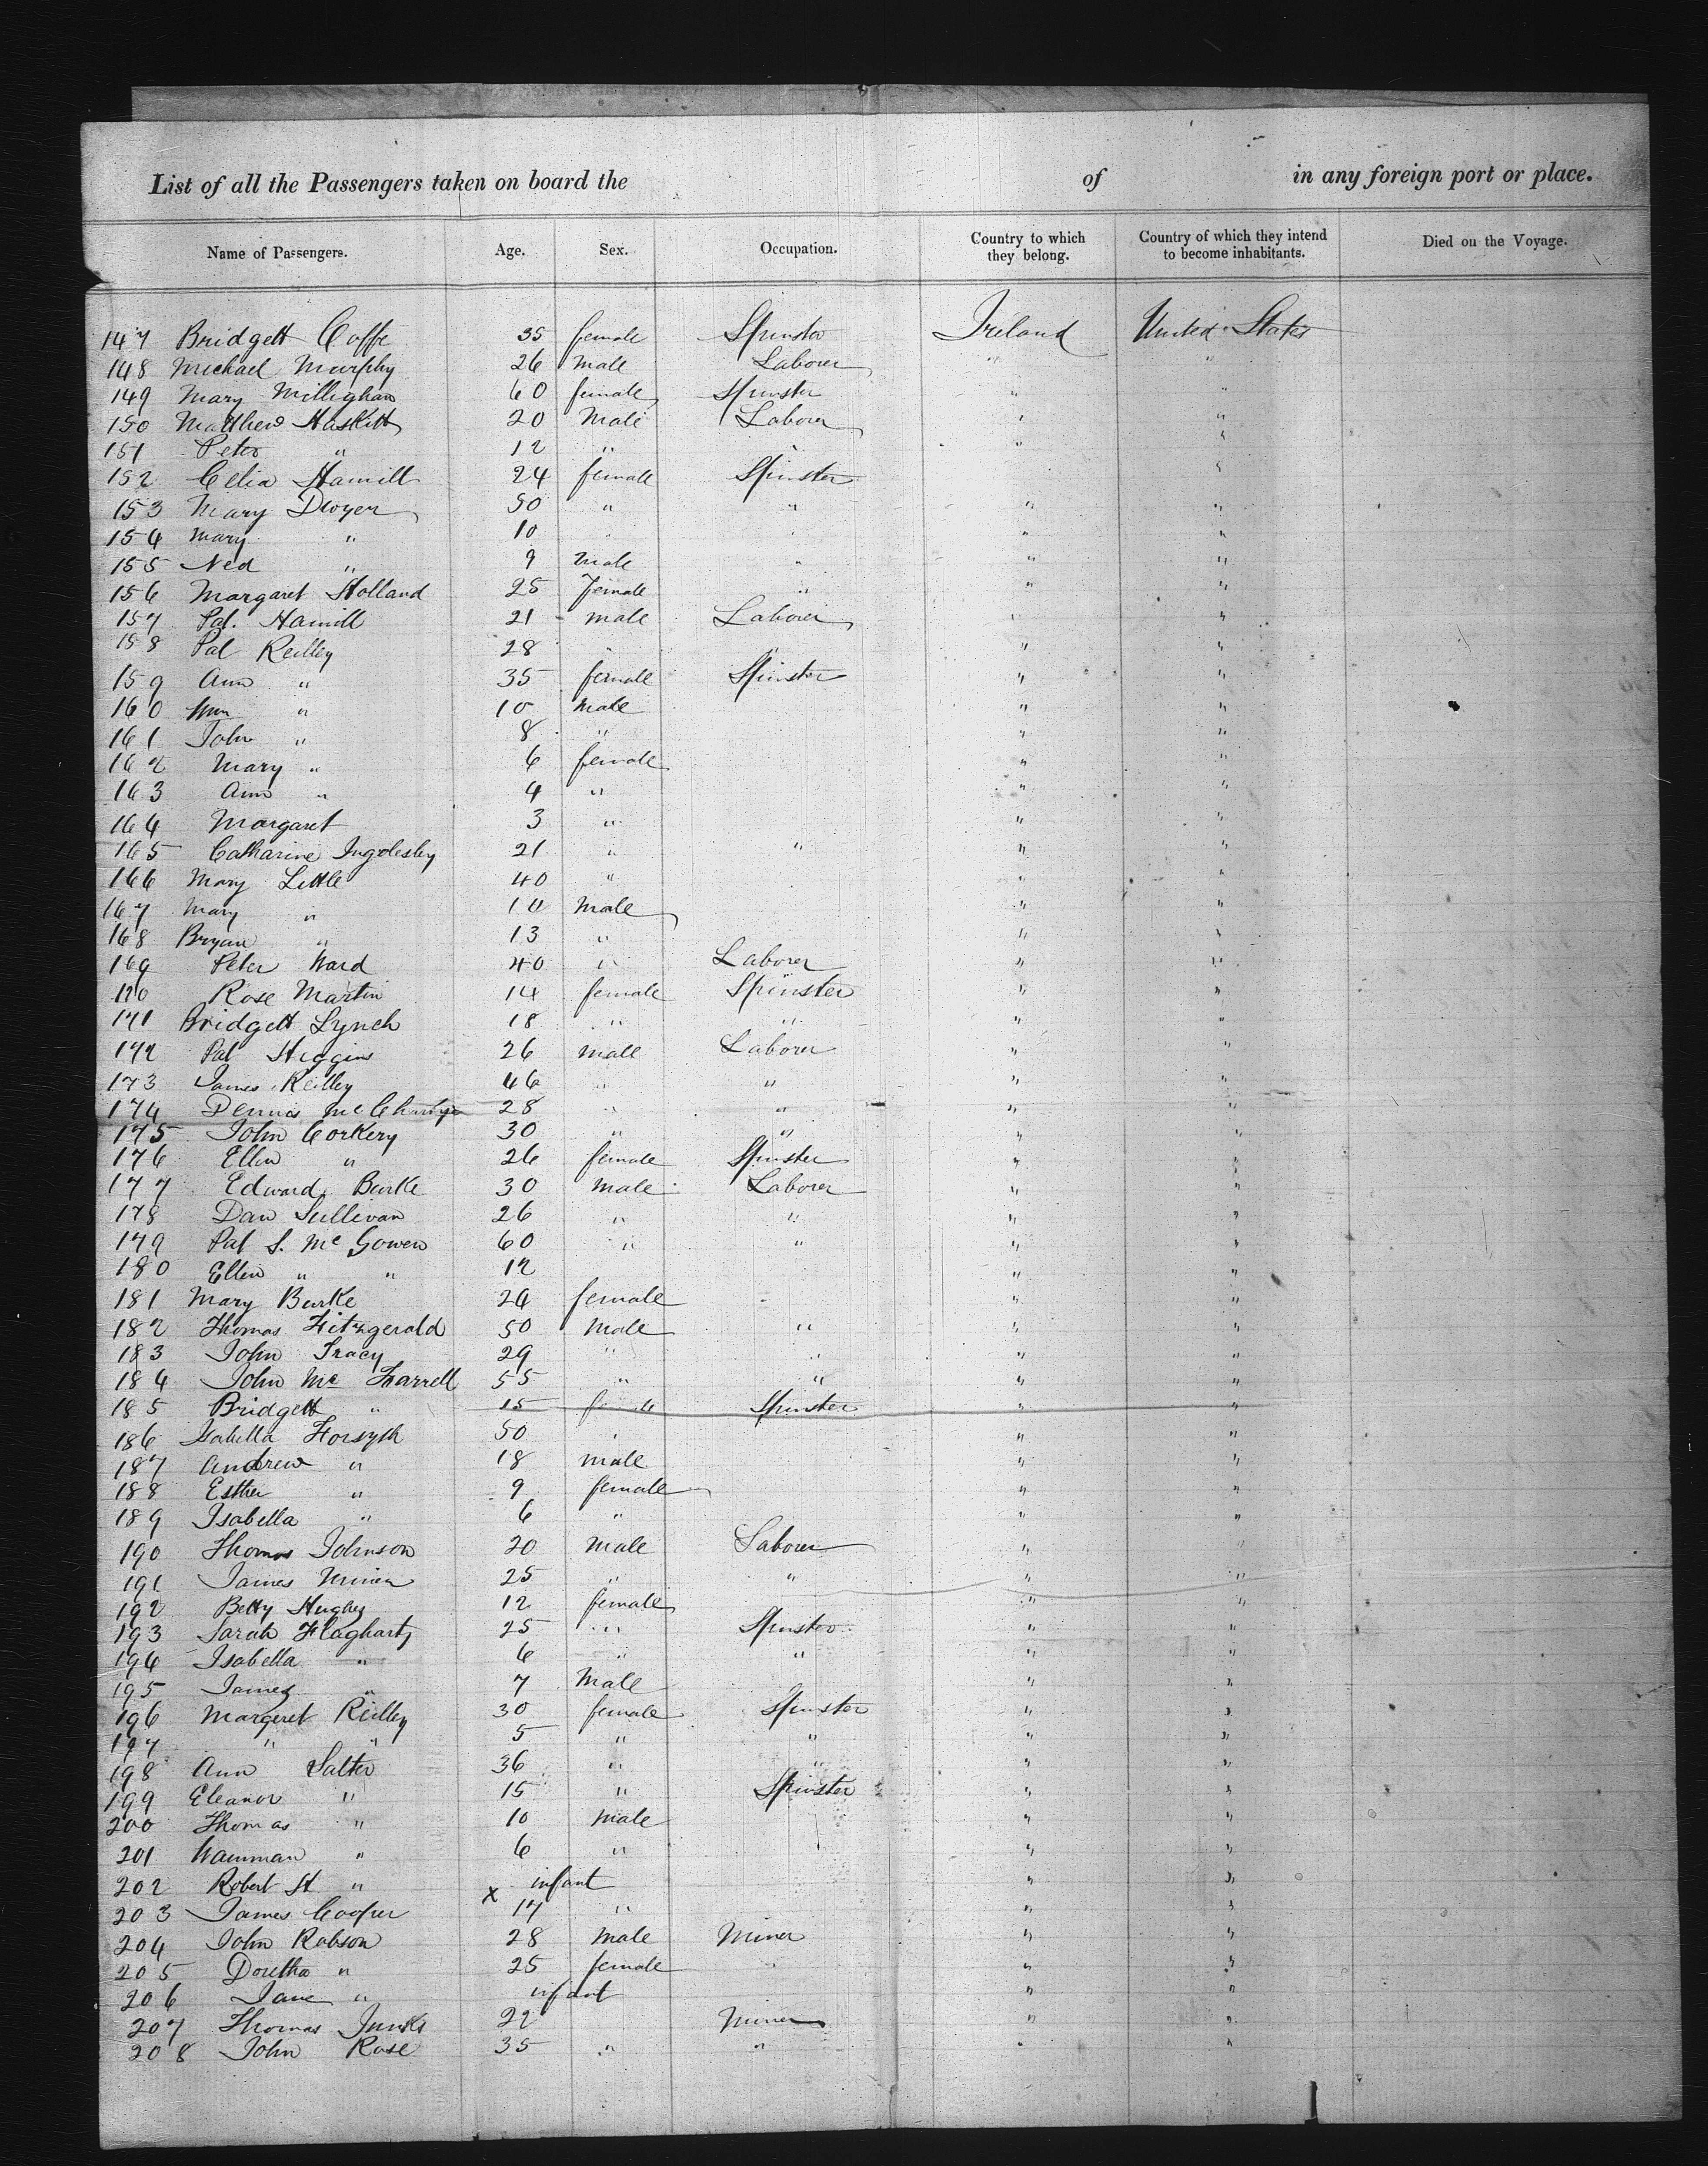 List of all the Passengers taken on board the of in any foreign port or place.
Name of Passengers. Age. Sex. Occupation. Country to which they belong. Country of which they intend to become inhabitants. Died on the Voyage.
147 Bridgett Coffe 35 female Spinster Ireland United States
148 Michael Murphy 26 Male Laborer " "
149 Mary Millighan 60 female Spinster " "
150 Matthew Haskitt 20 Male Laborer " "
151 Peter " 12 " " " "
152 Celia Hamill 24 female Spinster "
153 Mary Dwyer 50 " " " "
154 Mary " 10 " " " "
155 Ned " 9 Male " " "
156 Margaret Holland 25 Female " " "
157 Pat. Hamill 21 male Laborer " "
158 Pat Reilley 28 " " " "
159 Ann " 35 female Spinster " "
160 Wm " 10 Male " "
161 John " 8 " " "
162 Mary " 6 female " "
163 Ann " 4 " " "
164 Margaret 3 " " "
165 Catharine Ingolesby 21 " " " "
166 Mary Little 40 " " "
167 Mary " 10 Male " "
168 Bryan " 13 " " "
169 Peter Ward 40 " Laborer " "
170 Rose Martin 14 female Spinster " "
171 Bridgett Lynch 18 " " " "
172 Pat Higgins 26 male Laborer " "
173 James Reilley 46 " " " "
174 Dennis 28 " " " "
175 John Corkery 30 " " " "
176 Ellen " 26 female Spinster " "
177 Edward Burke 30 male Laborer " "
178 Dan Sullivan 26 " " " "
179 Pat S. Mc Gowen 60 " " " "
180 Ellen " " 12 " "
181 Mary Burke 24 female " "
182 Thomas Fitzgerald 50 Male " " "
183 John Tracy 29 " " " "
184 John Mc Farrell 55 " " " "
185 Bridgett " 15 female Spinster " "
186 Isabella Forsyth 50 " " "
187 Andrew " 18 male " "
188 Esther " 9 female " "
189 Isabella " 6 " " "
190 Thomas Johnson 20 Male Laborer " "
191 James 25 " " " "
192 Betty Hughes 12 female " "
193 Sarah Flagharty 25 " Spinster " "
194 Isabella " 6 " " " "
195 James " 7 Male " "
196 Margeret Reilley 30 female Spinster " "
197 " " 5 " " " "
198 Ann Salter 36 " " " "
199 Eleanor " 15 " Spinster " "
200 Thomas " 10 Male " "
201 " 6 " " "
202 Robert St " infant " "
203 James Cooper x 17 " " "
204 John Robson 28 Male Miner " "
205 Doretha " 25 female " " "
206 Jane " infant " "
207 Thomas 22 Miner " "
208 John Rose 35 " " " "